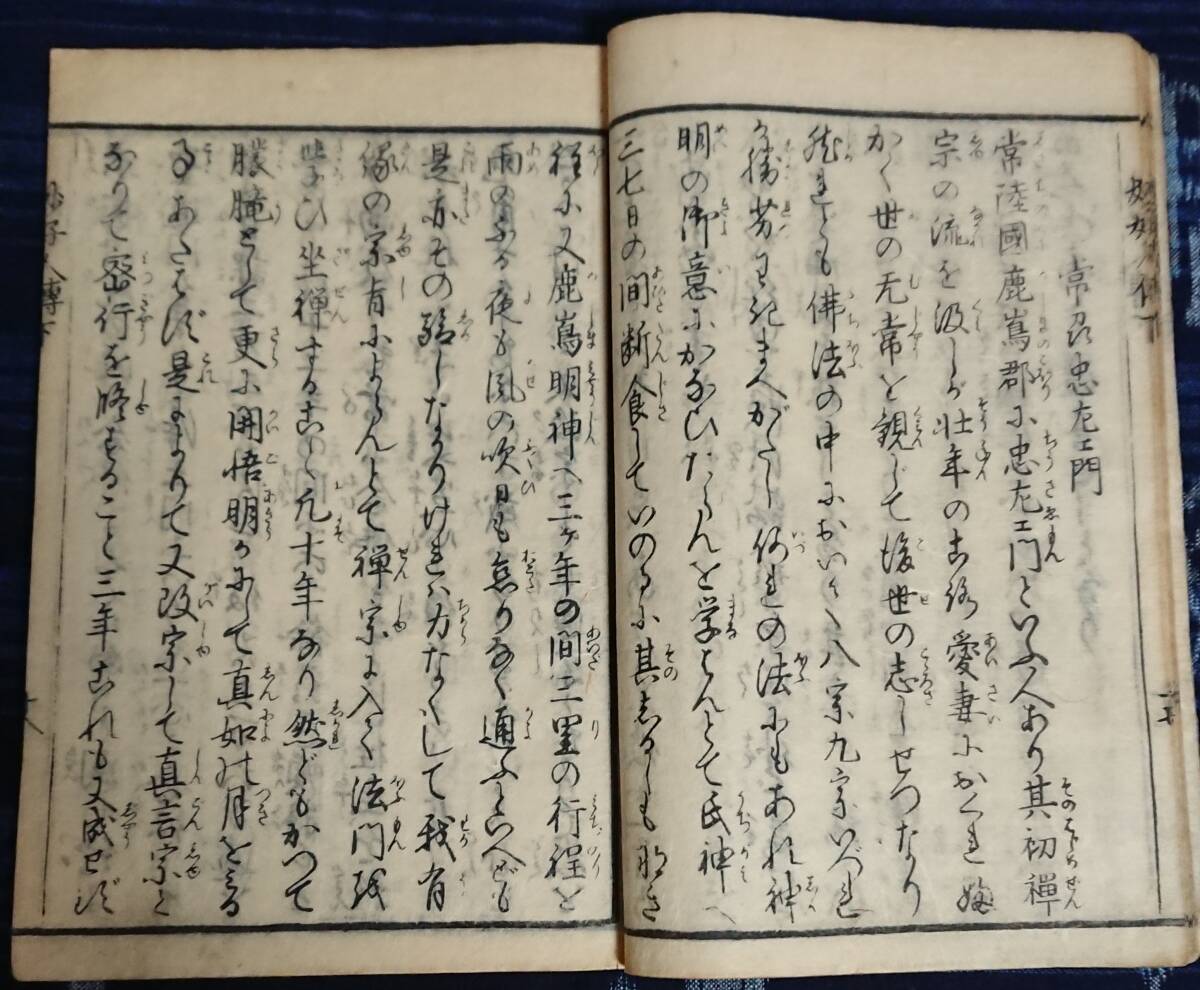 常州忠左エ門
常陸國鹿嶌郡に忠左エ門といふ人あり其初禪
宗の流を汲しが壮年のころ愛妻におくれ
かく世の无常を観じて後世の志しせつなり
然れども佛法の中において八宗九宗いづれ
勝劣わきまへがたし何れの法にもあれ神
明の御意にかなひたらんを学ばんとて氏神へ
三七日の間断食していのるに其しるしも無き
程に又鹿嶌明神へ三ヶ年の間二里の行程を
雨のふる夜も風の吹日も怠りなく通ふといへども
是亦その驗しなかりければ力なくして我有
縁の宗旨によらんとて禅宗に入て法門を
学び坐禅すること凡十年なり然どもかつて
朦朧として更に開悟明かにして真如の月を見る
事あたはず是によりて又改宗して真言宗と
なりて密行を修すること三年これも又成ぜず